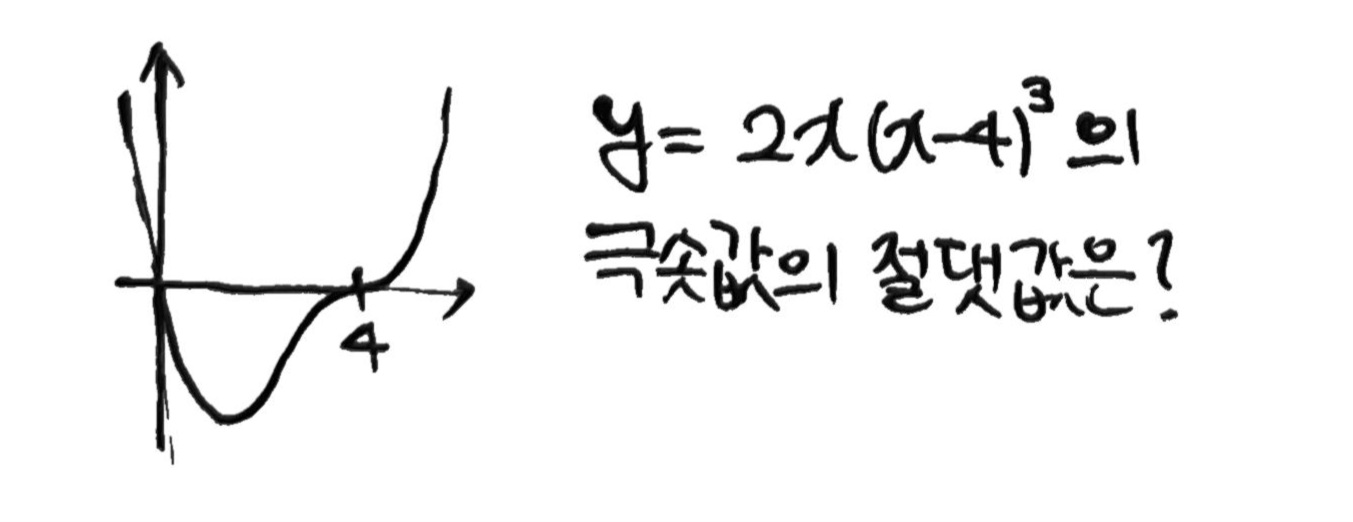 4
y = 2x(x-4)³의
극솟값의 절댓값은?